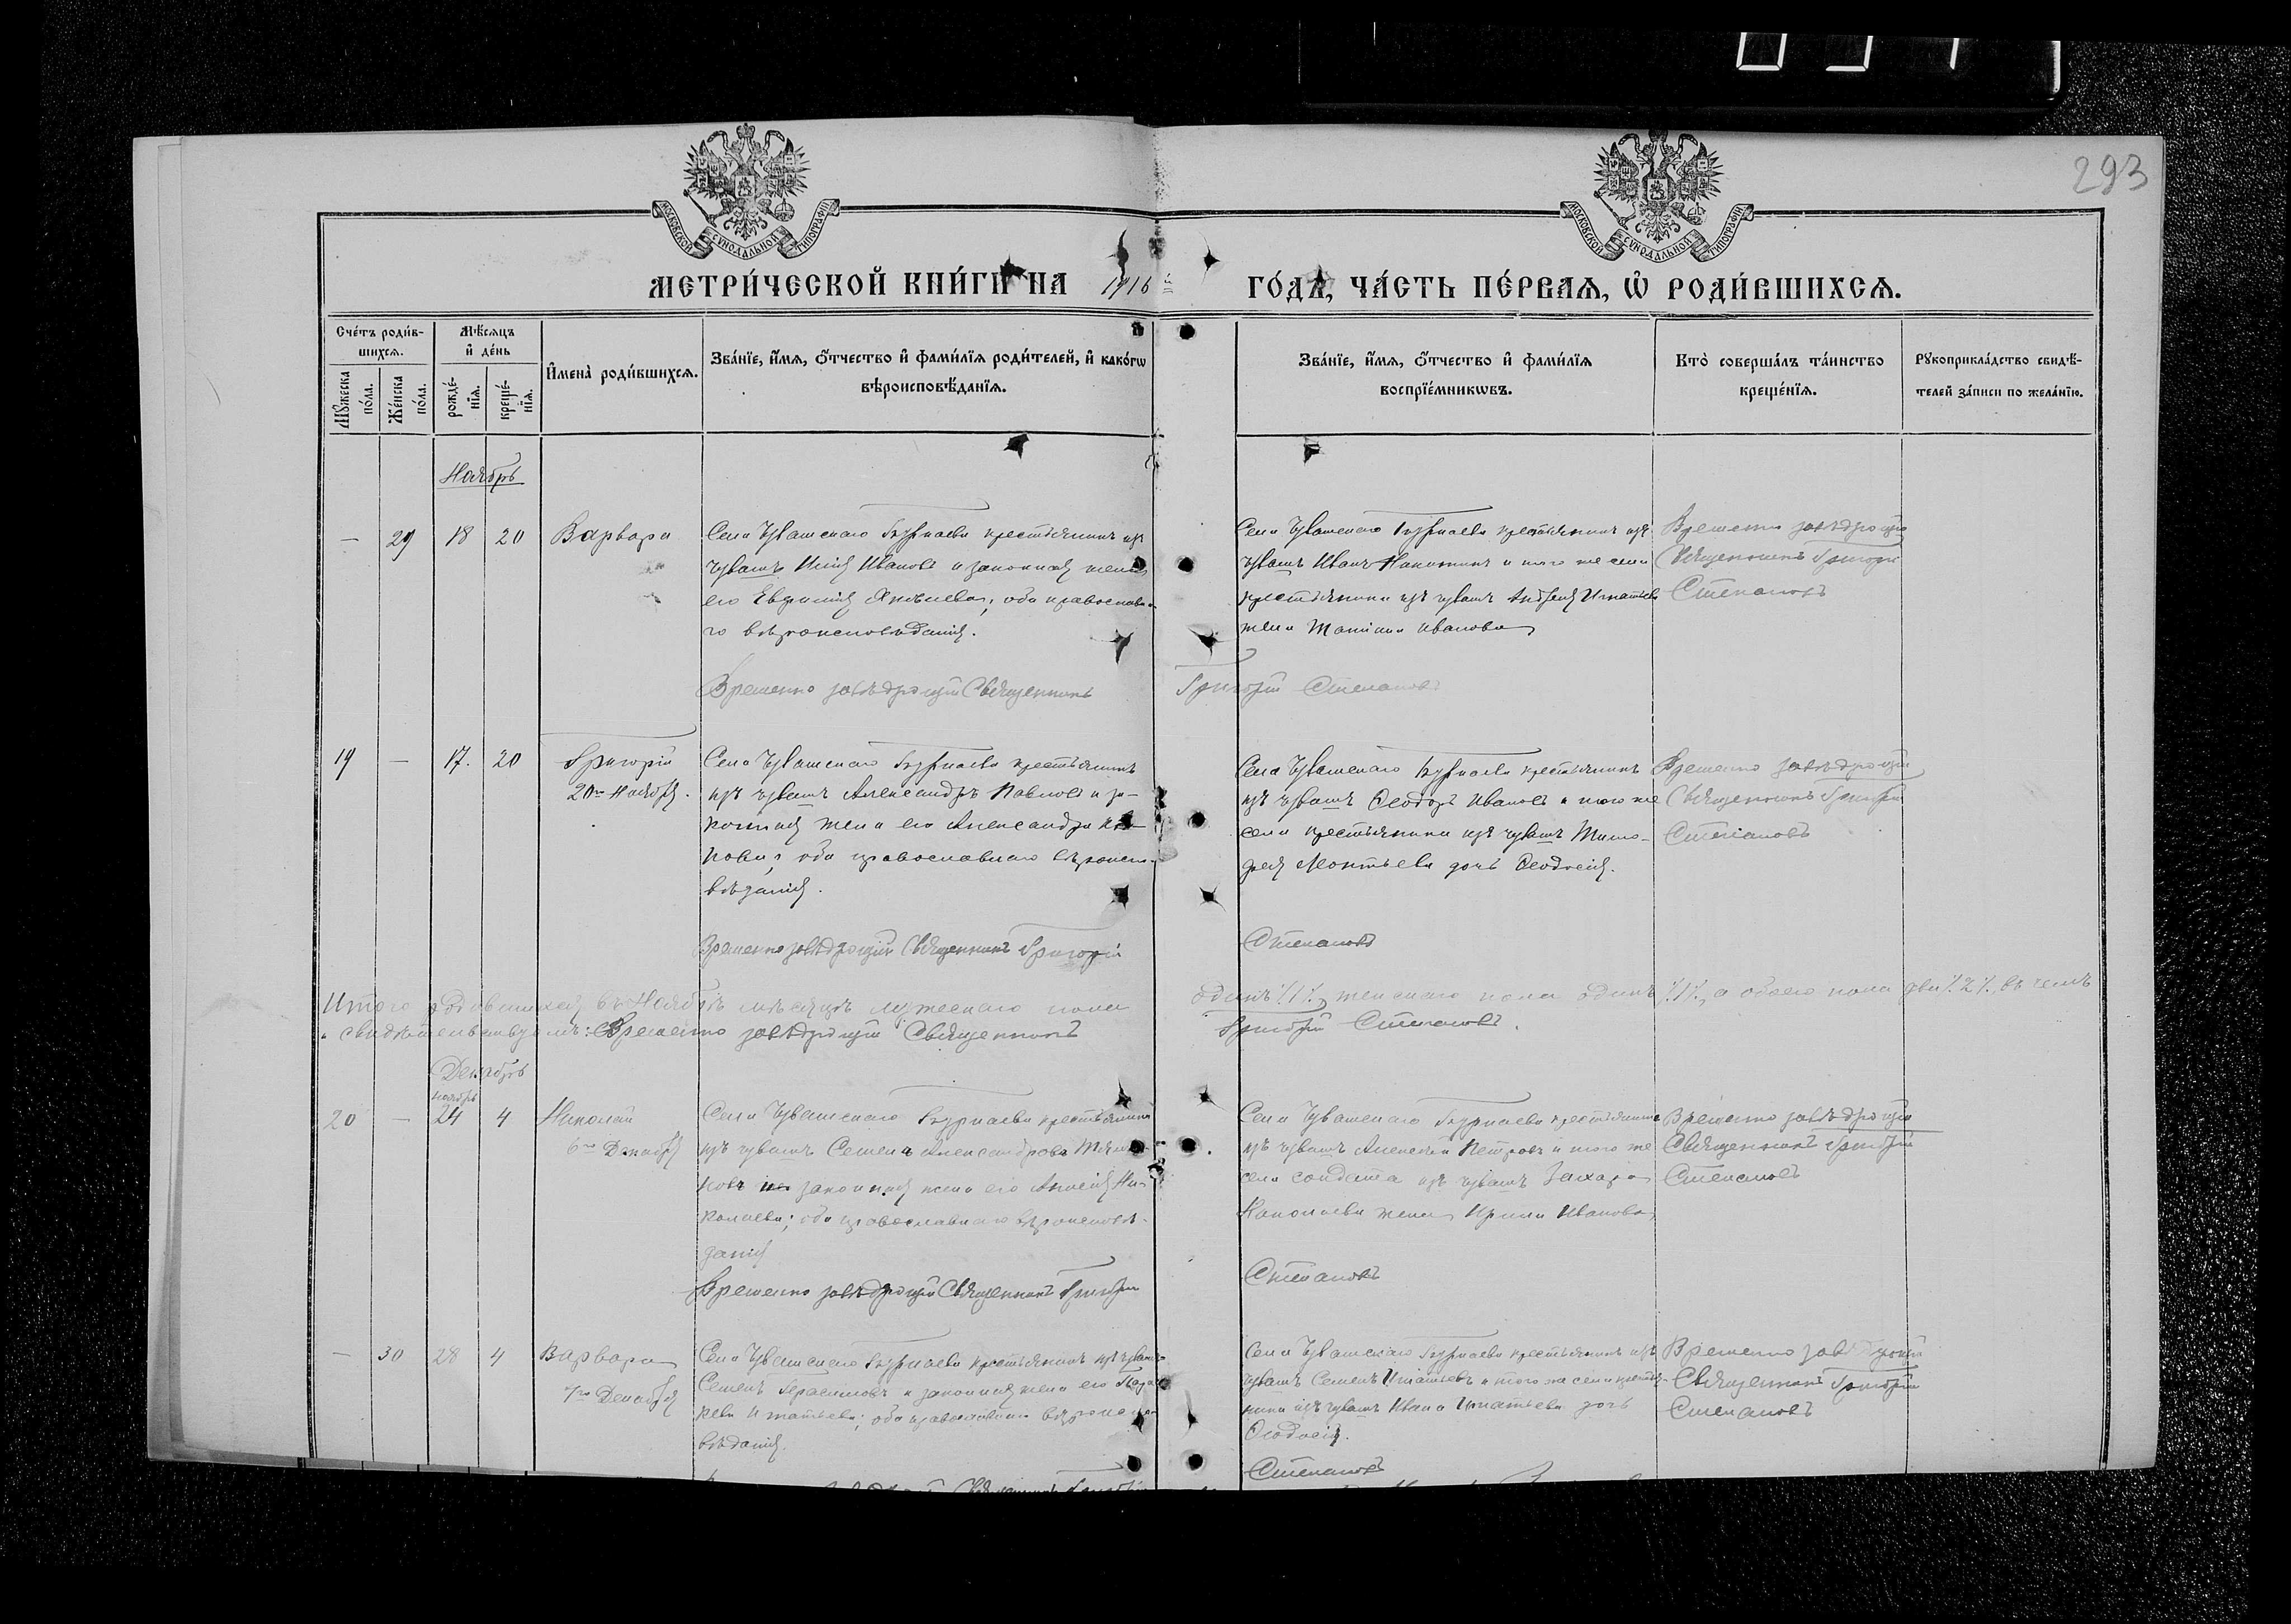 293
МОСКОВСКОЙ СѴНОДАЛЬНОЙ ТИПОГРАФІИ
МОСКОВСКОЙ СѴНОДАЛЬНОЙ ТИПОГРАФІИ
МЕТРИ́ЧЕСКОЙ КНИ́ГИ НА 1916 ГО́ДЪ, ЧА́СТЬ ПЕ́РВАЯ, Ѡ҆ РОДИ́ВШИХСЯ.
Сче́тъ роди́в-
шихся.
Мѣ́сяцъ
и҆ де́нь
Мꙋ́жеска
по́ла.
Же́нска
по́ла.
рожде́-
нїя.
креще́-
нїя.
И҆мена̀ роди́вшихся.
Зва́нїе, и҆́мя, ѻ҆́тчество и҆ фами́лїя роди́телей, и҆ како́гѡ
вѣроисповѣ́данїя.
Зва́нїе, и҆́мя, ѻ҆́тчество и҆ фами́лїя
воспрїе́мникѡвъ.
Кто̀ соверша́лъ та́инство
креще́нїя.
Рꙋкоприкла́дство свидѣ́-
телей за́писи по жела́нїю.
Ноябрь
— 29 18 20 Варвара
Села Чувашскаго Бурнаева крестьянинъ изъ
чувашъ Илія Ивановъ и законная жена
его Евфимія Яковлева; оба православна-
го вѣроисповѣданія.
Села Чувашскаго Бурнаева крестьянинъ изъ
чувашъ Иванъ Никитинъ и того же села
крестьянина изъ чувашъ Андрея Игнатьева
жена Татіана Иванова
Временно завѣдующій
Священникъ Григорій
Степановъ
Временно завѣдующій Священникъ Григорій Степановъ
19 — 17. 20 Григорій
20го Ноября.
Села Чувашскаго Бурнаева крестьянинъ
изъ чувашъ Александръ Павловъ и за-
конная жена его Александра
оба православнаго вѣроиспо-
вѣданія.
Села Чувашскаго Бурнаева крестьянинъ
изъ чувашъ Ѳеодоръ Ивановъ и того же
села крестьянина изъ чувашъ Тимо-
фея Леонтьева дочь Ѳеодосія.
Временно завѣдующій
Священникъ Григорій
Степановъ
Временно завѣдующій Священникъ Григорій Степановъ
Итого родившихся въ Ноябрѣ мѣсяцѣ мужескаго пола одинъ /1/, женскаго пола одинъ /1/, а обоего пола два /2/. въ чемъ
и свидѣтельствуемъ: Временно завѣдующій Священникъ Григорій Степановъ.
Декабрь
ноябрь
20 — 24 4 Николай
6го Декабря
Села Чувашскаго Бурнаева крестьянинъ
изъ чувашъ Семенъ Александровъ
законная жена его Анисія Ни-
колаева; оба православнаго вѣроисповѣ-
данія
Села Чувашскаго Бурнаева крестьянинъ
изъ чувашъ Алексѣй Петровъ и того же
села солдата изъ чувашъ Захара
Николаева жена Ирина Иванова
Временно завѣдующій
Священникъ Григорій
Степановъ
Временно завѣдующій Священникъ Григорій Степановъ
— 30 28 4 Варвара
Декабря
Села Чувашскаго Бурнаева крестьянинъ изъ чувашъ
Семенъ Герасимовъ и законная жена его
Игнатьева; оба православнаго вѣроиспо-
вѣданія.
Села Чувашскаго Бурнаева крестьянинъ изъ
чувашъ Семенъ Игнатьевъ и того же села крестья-
нина изъ чувашъ Ивана Игнатьева дочь
Ѳеодосія.
Временно завѣдующій
Священникъ Григорій
Степановъ
Степановъ